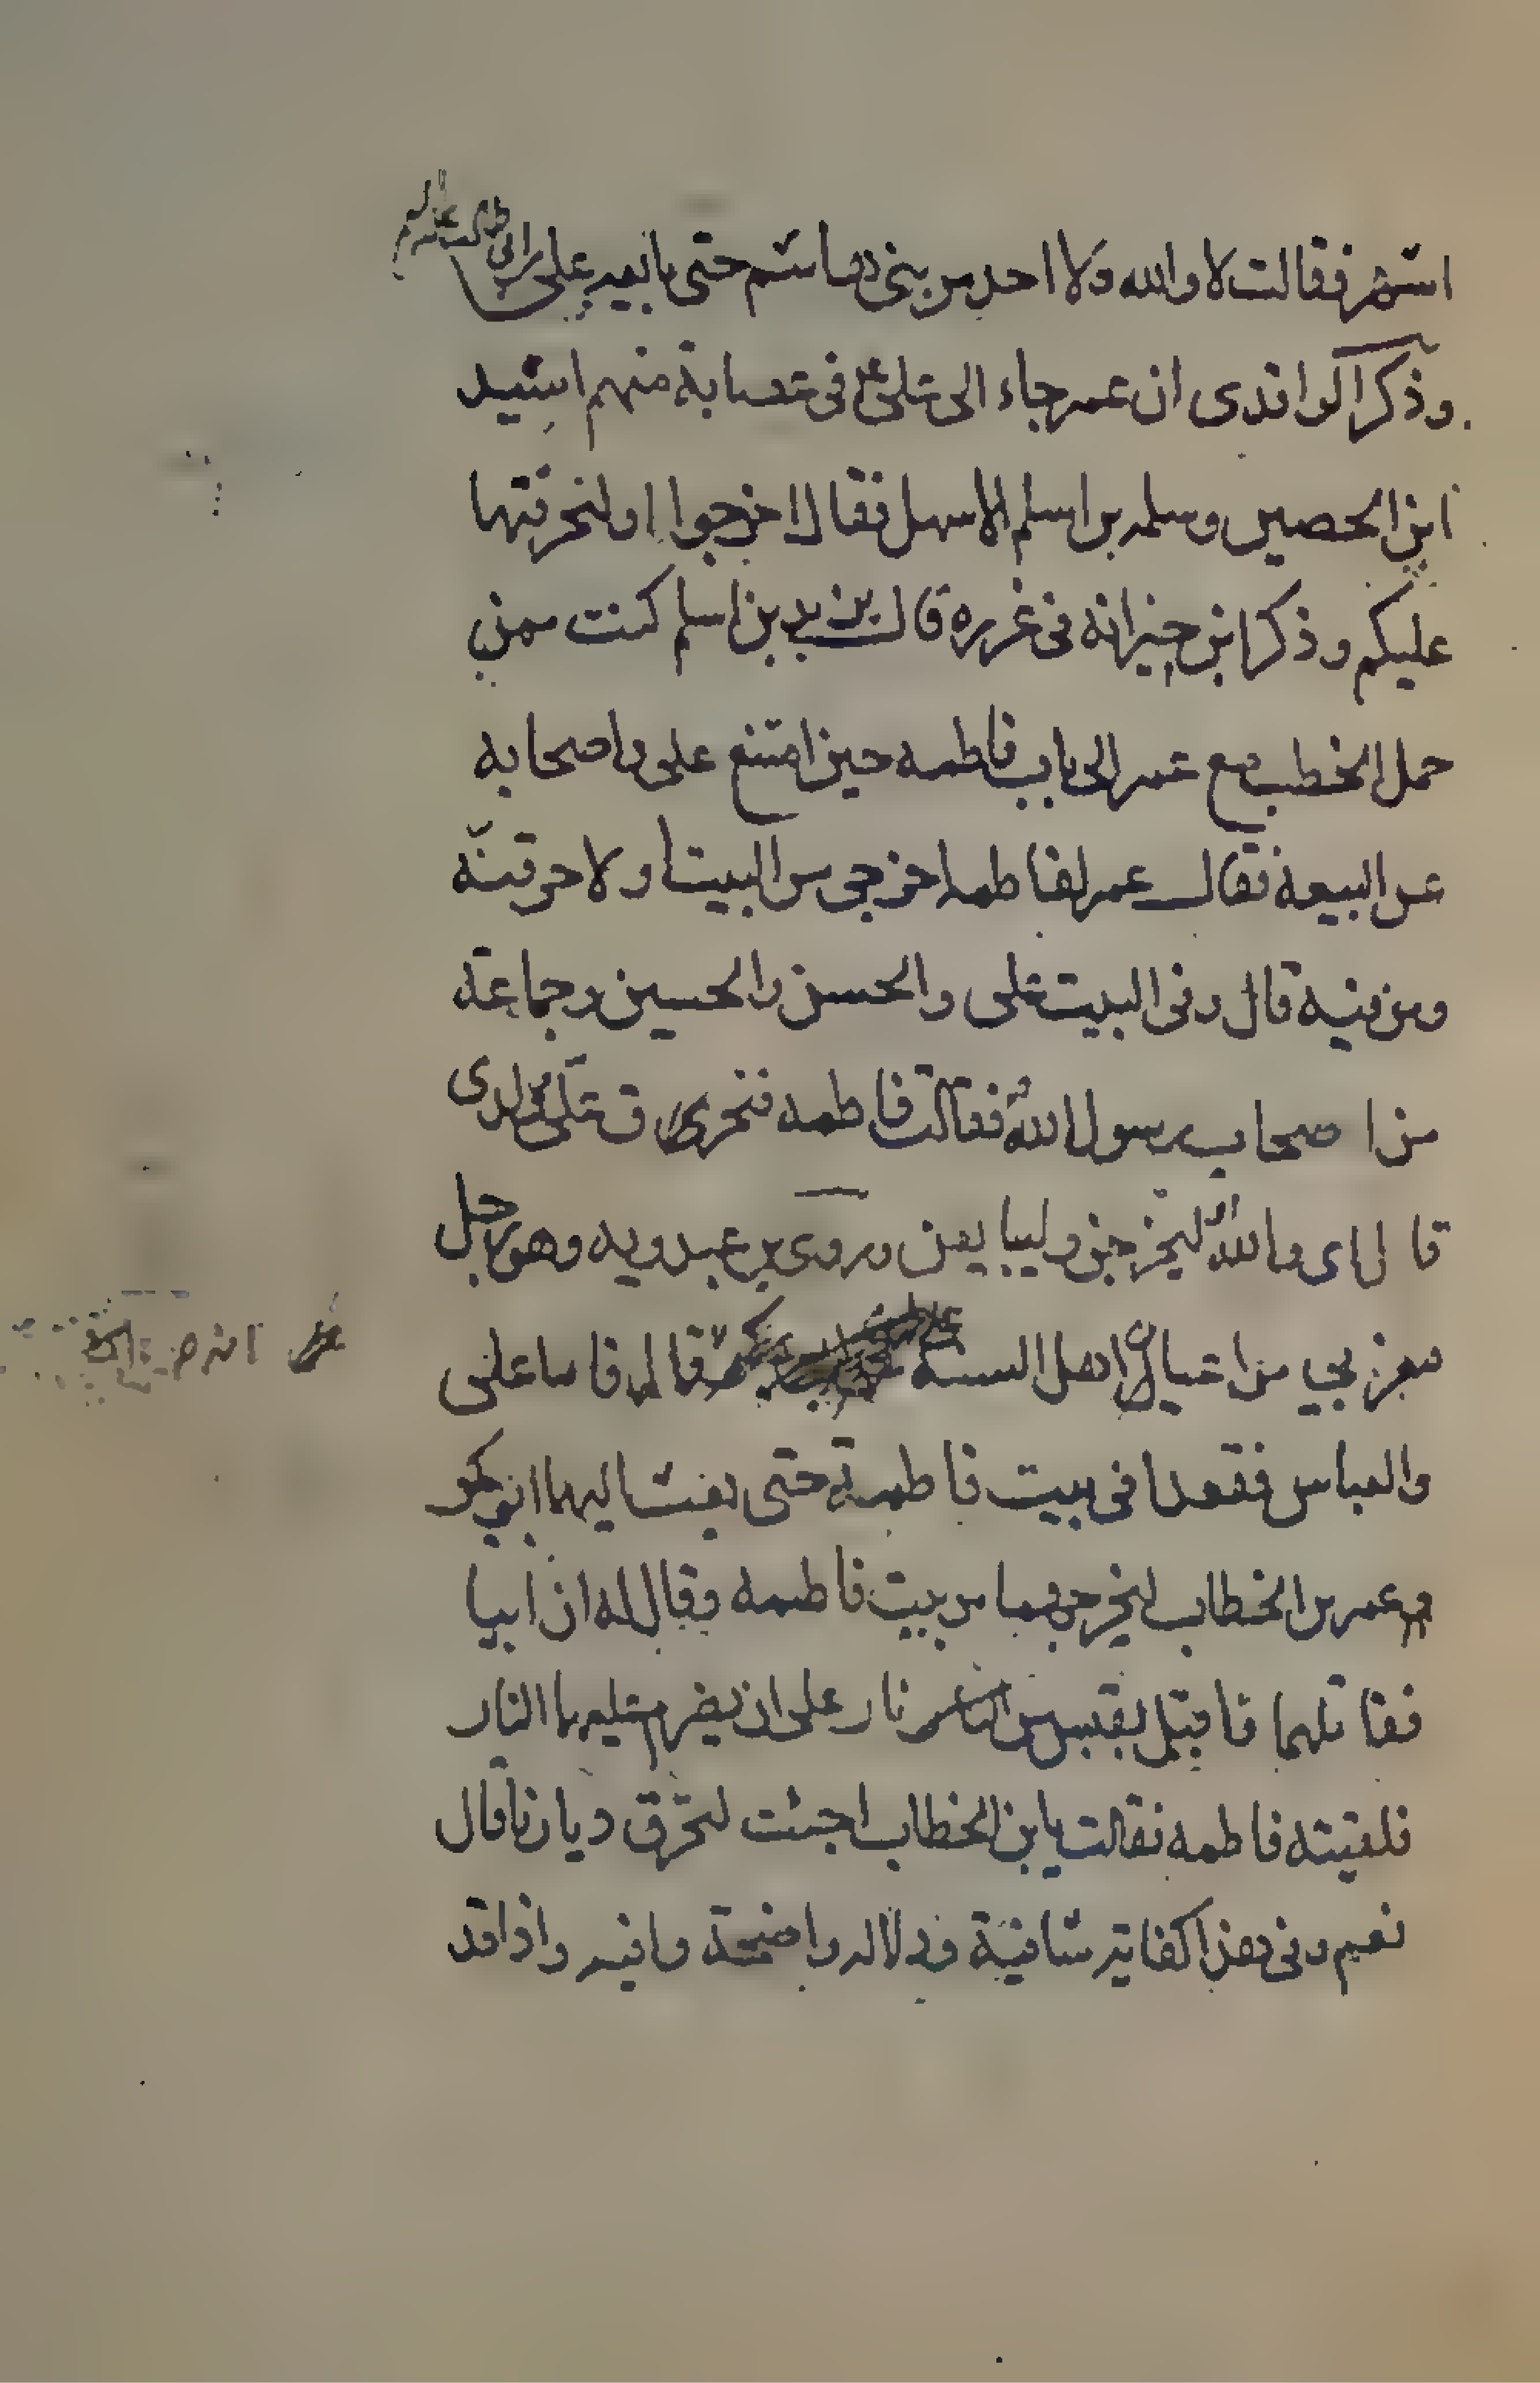 اشهر فقالت لا والله ولا احد من بنى هاشم حتى بايعه على بن ابى طالب
وذكر الواقدى ان عمر جاء الى على ع فى عصابة منهم اسيد
ابن الحصين وسلمه بن اسلم الاسهل فقال اخرجوا او لنحرقنها
عليكم وذكر ابن خيزانه فى غرره قال زيد بن اسلم كنت ممن
حمل الخطب مع عمر الى باب فاطمه حين امتنع على واصحابه
عن البيعة فقال عمر لفاطمه اخرجى من البيت او لاحرقنه
ومن فيه قال وفى البيت على والحسن والحسين وجماعة
من اصحاب رسول الله فقالت فاطمه فتحرق على ولدى
قال اى والله ليخرجن وليبايعن وروى بن عبدويه وهو رجل
معزبى من اعيان اهل السنة قال فاما على
والعباس فقعدا فى بيت فاطمة حتى بعث اليهما ابو بكر
عمر بن الخطاب ليخرجهما من بيت فاطمه وقال له ان ابيا
فقاتلهما فاقبل بقبس من نار على ان يضرم عليهما النار
فلقيته فاطمه فقالت يا بن الخطاب اجئت لتحرق ديارنا قال
نعم وفى هذا كفاية شافية ودلاله واضحة وافيه واذا قد